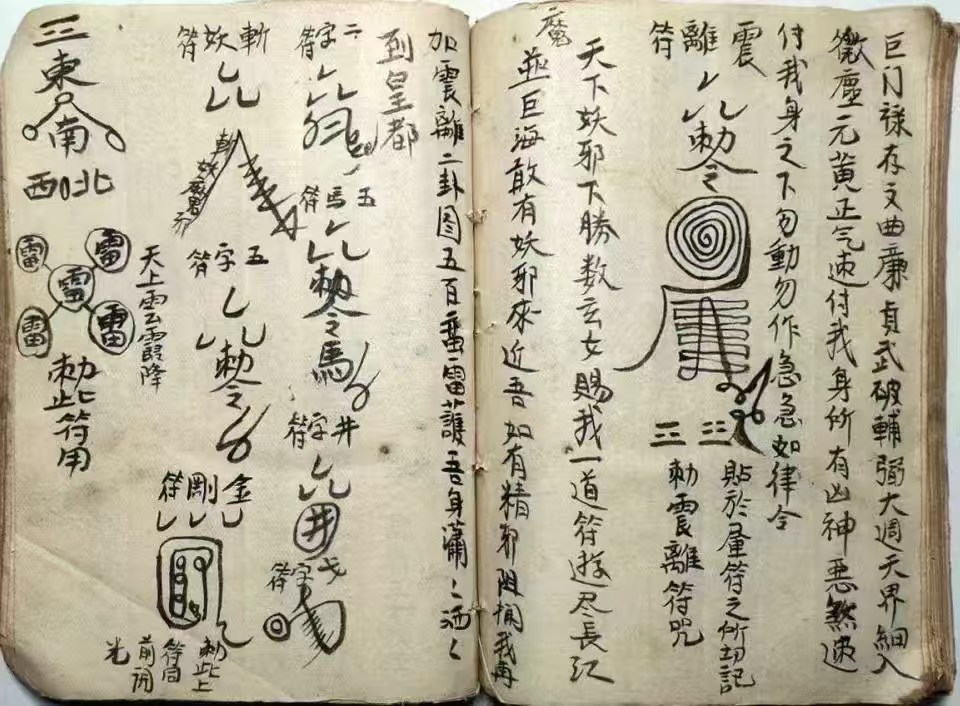 巨门禄存文曲廉貞武破輔弼大週天界細入
微塵元黄正气速付我身所有凶神恶煞速
付我身之下勿動勿作急急如律令
震離符
勅令
貼於符之所切記
勅震離符咒
天下妖邪下勝数玄女賜我一道符遊尽長江
並巨海敢有妖邪來近吾如有精邪阻我再
魔
加震離二卦图五百蛮雷護吾身潇〻洒〻
到皇都
二字符
五馬符
勅令馬
井字符
井
戈字符
斬妖符
斬妖魔
五字符
勅令
金剛符
勅此上
符同
前
光
天上雲霞降
東
南
西北
雷
雷
雷
雷
雷
勅此符用